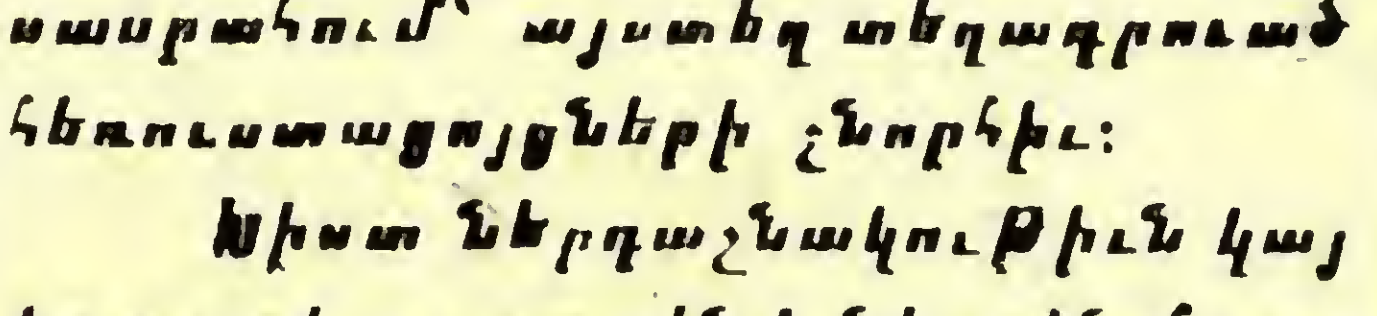 սասրահում՝ այստեղ տեղագրուած
հեռուստացոյցների շնորհիւ։
Խիստ ներդաշնակութիւն կայ